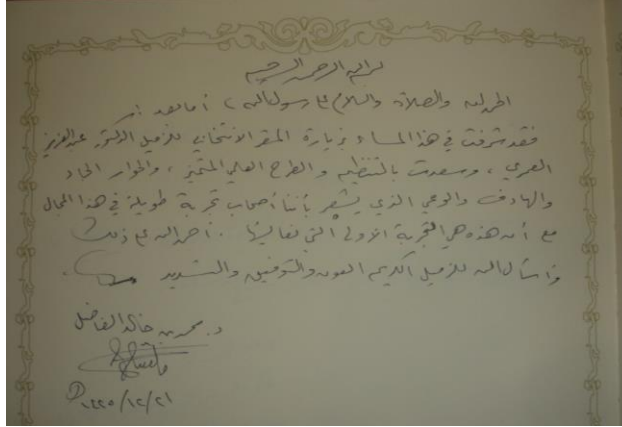 بسم الله الرحمن الرحيم
الحمد لله والصلاة والسلام على رسول الله ، أما بعد :
فقد شرفت في هذا المساء بزيارة المقر الانتخابي للزميل الدكتور عبدالعزيز
العمري ، وسعدت بالتنظيم والطرح العالي المتميز ، والحوار الجاد
والهادف والوعي الذي يشعر بأننا أصحاب تجربة طويلة في هذا المجال
مع أن هذه هي التجربة الأولى التي نعايشها . أحمد الله على ذلك
وأسأل الله للزميل الكريم العون والتوفيق والتسديد
د. محمد بن خالد الفاضل
١٤٢٥/١٢/٢١هـ